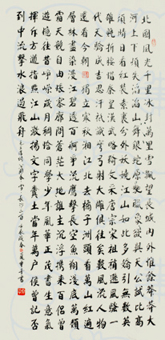 北國風光千里冰封萬里雪飄望長城內外惟餘莽莽大
河上下頓失滔滔山舞銀蛇原馳蠟象欲與天公試比高
須晴日看紅裝素裹分外妖嬈江山如此多嬌引無數英
雄競折腰惜秦皇漢武略輸文采唐宗宋祖稍遜風騷一
代天驕成吉思汗只識彎弓射大雕俱往矣數風流人物
還看今朝 獨立寒秋湘江北去橘子洲頭看萬山紅遍
層林盡染漫江碧透百舸爭流鷹擊長空魚翔淺底萬類
霜天競自由悵寥廓問蒼茫大地誰主沉浮攜來百侶曾
遊憶往昔崢嶸歲月稠恰同學少年風華正茂書生意氣
揮斥方遒指點江山激揚文字糞土當年萬戶侯曾記否
到中流擊水浪遏飛舟